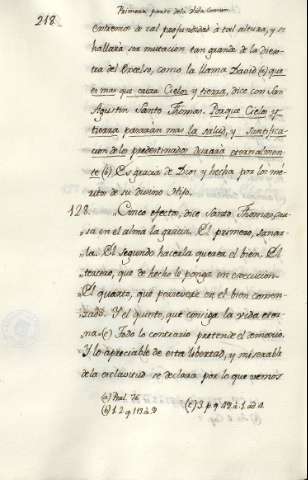 Primera parte de la Vida Comun
218.
extremos de tal profundidad á tal altura, y se
hallará ser mutacion tan grande de la dies-
tra del Excelso, como la llama David (a) que
es mas que criar Cielos y tierra, dice con San
Agustin Santo Thomas. Porque Cielos y
tierra pasarán mas la salud, y Santifica-
cion de los predestinados durará eternalmen-
te (b). Es gracia de Dios, y hecha por los mé-
ritos de su divino Hijo.
128. Cinco efectos, dice Santo Thomas, cau-
sa en el alma la gracia. El primero, sanar-
la. El segundo hacerla querer el bien. El
tercero, que de hecho lo ponga en execucion.
El quarto, que persevere en el bien comen-
zado. Y el quinto, que consiga la vida eter-
na. (c) Todo lo contrario pretende el demonio.
Y lo apreciable de esta libertad, y miserable
de la esclavitud se declara por lo que vemos
(a) Psal. 76.
(b) 1. 2. q 113 á 9
(c) 3. p. q. 49. á 1. ad 4.